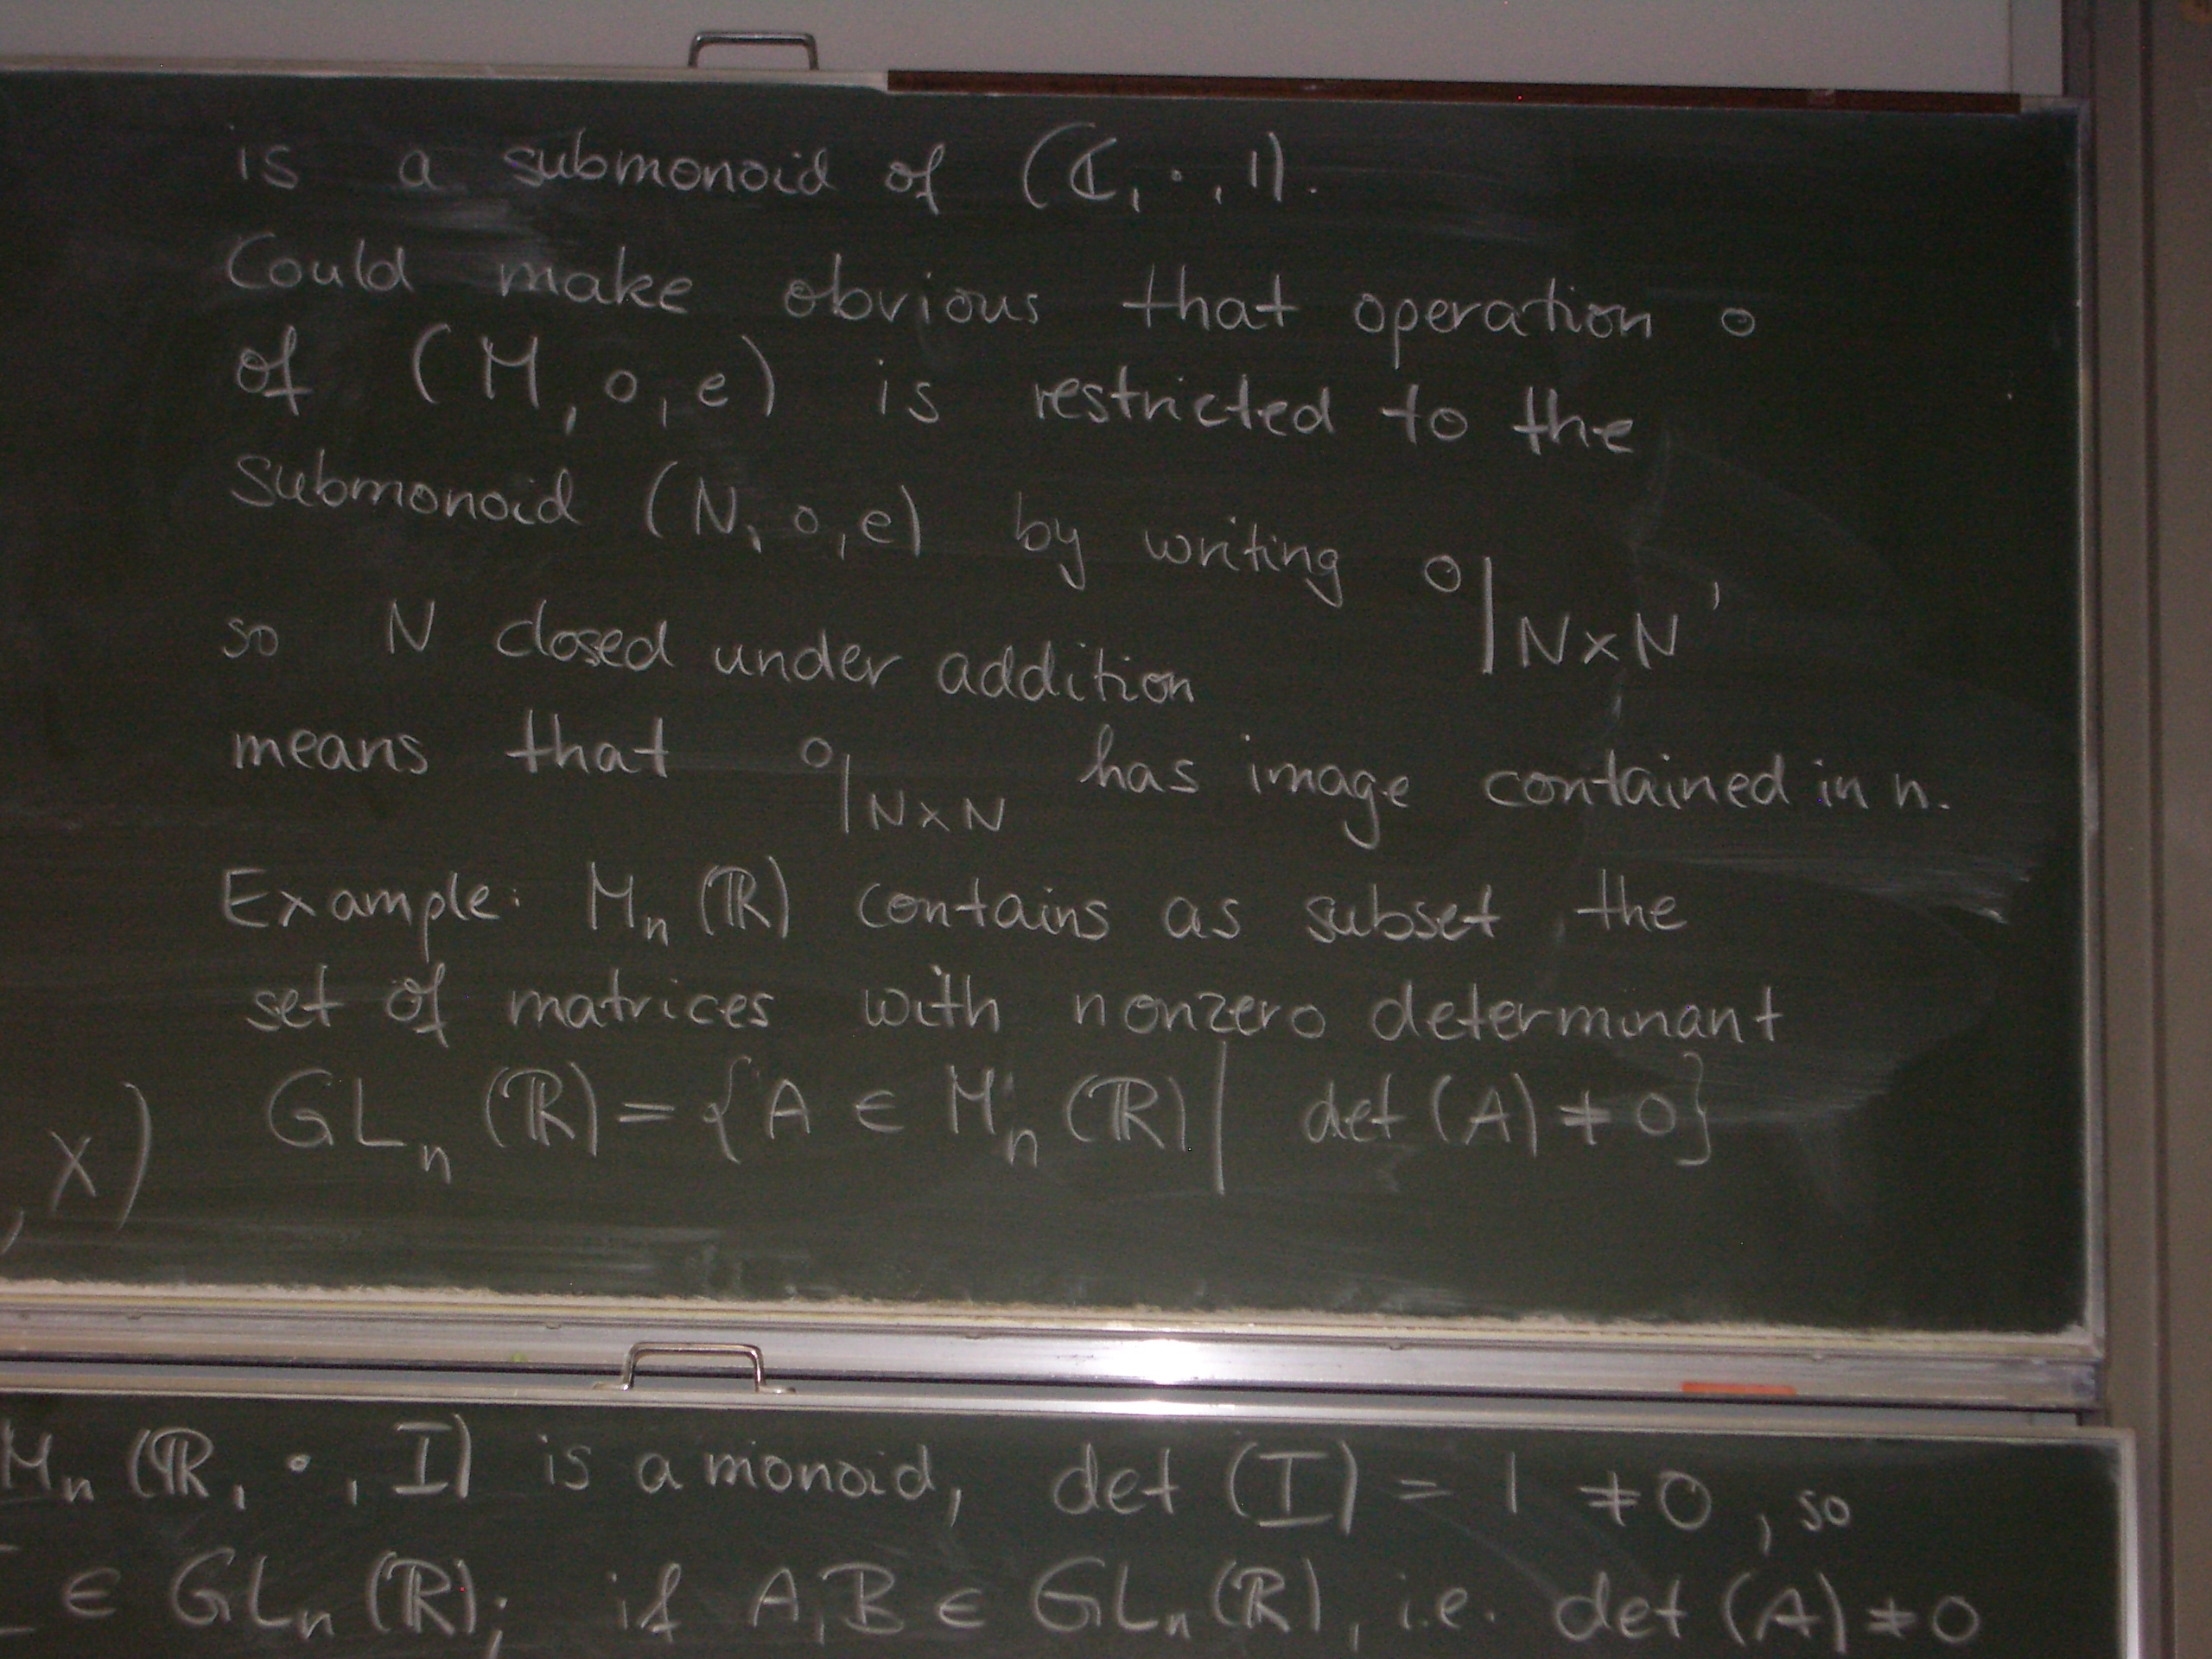 is a submonoid of (ℂ, ·, 1).
Could make obvious that operation ∘
of (M, ∘, e) is restricted to the
submonoid (N, ∘, e) by writing ∘|N×N,
so N closed under addition
means that ∘|N×N has image contained in n.
Example: Mn (ℝ) contains as subset the
set of matrices with nonzero determinant
GLn (ℝ) = {A ∈ Mn (ℝ) | det (A) ≠ 0}
, x)
Mn (ℝ, ·, I) is a monoid, det (I) = 1 ≠ 0, so
∈ GLn (ℝ); if A, B ∈ GLn (ℝ), i.e. det (A) ≠ 0